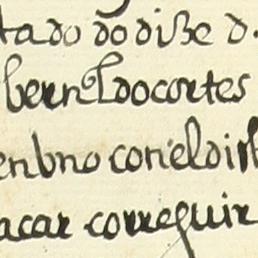 tado do dize d.
bernldo cortes
en bno con el dis
acar correguir